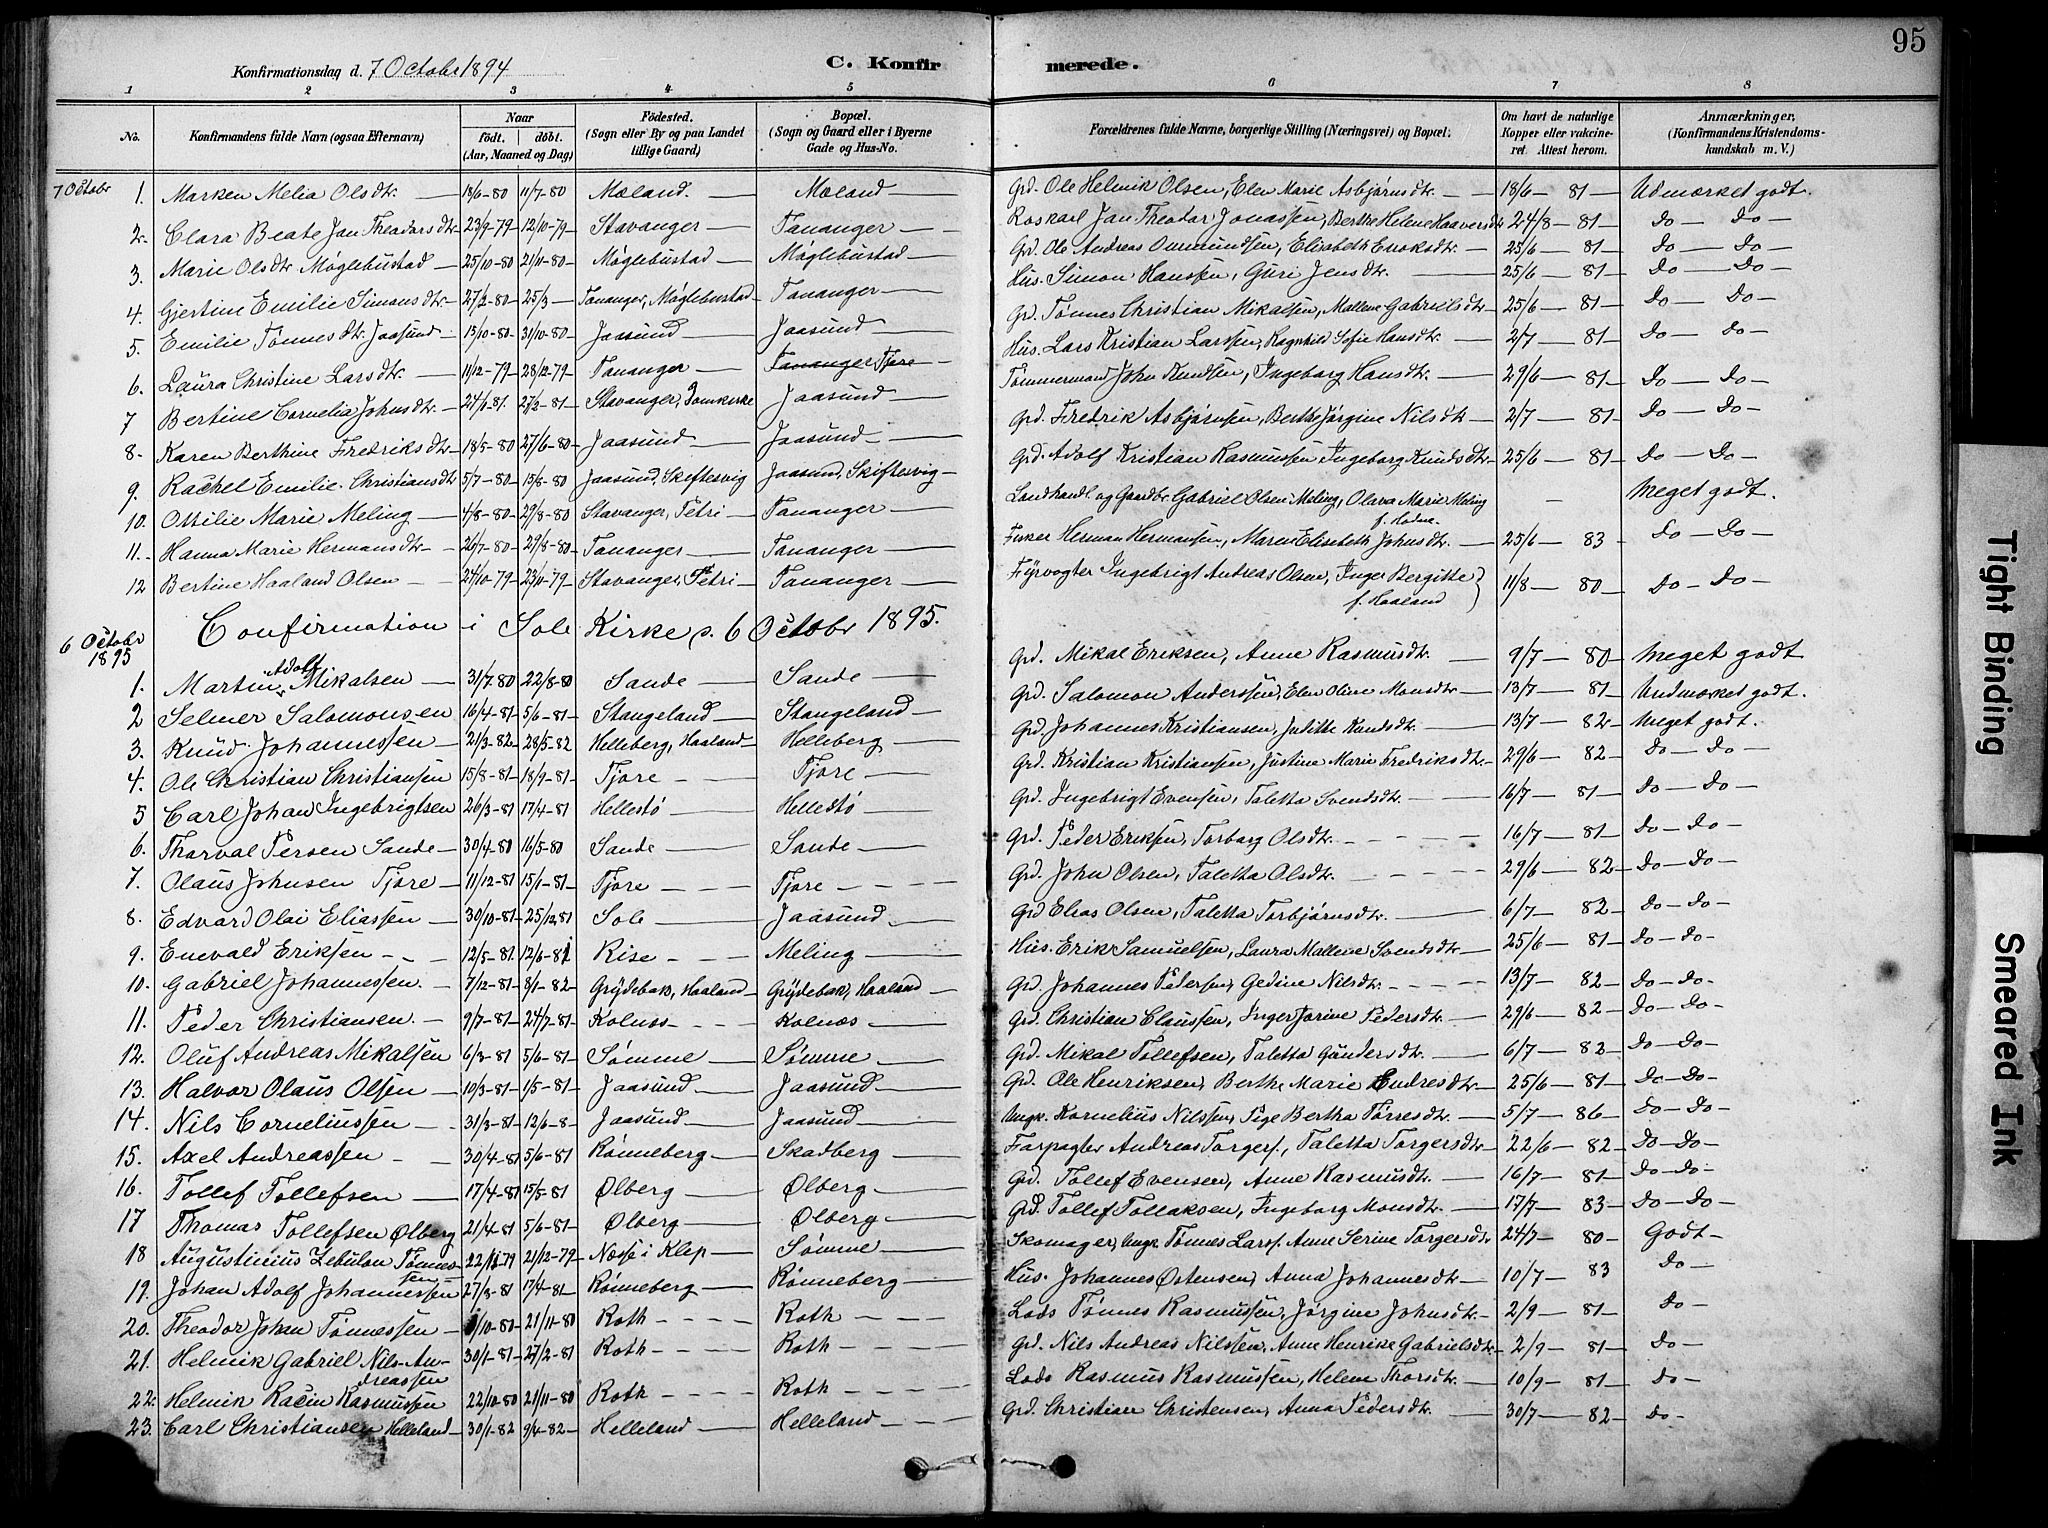 95
Konfirmationsdag d. 7 Octobr 1894
C. Konfirmerede.
1 2 3 4 5 6 7 8
No. | Konfirmandens fulde Navn (ogsaa Efternavn) | Naar födt. döbt. (Aar, Maaned og Dag) | Födested. (Sogn eller By og paa Landet tillige Gaard) | Bopæl. (Sogn og Gaard eller i Byerne Gade og Hus-No. | Forældrenes fulde Navne, borgerlige Stilling (Næringsvei) og Bopæl. | Om havt de naturlige Kopper eller vakcineret. Attest herom. | Anmærkninger. (Konfirmandens Kristendomskundskab m. V.)
7 Octobr
1. Marken Melia Olsdtr. 13/6-80 11/7-80 Mæland. Mæland Grd. Ole Helmik Olsen, Elen Marie Asbjørnsdtr. 18/6-81 Udmærket godt.
2. Clara Beate Jan Theodorsdtr 23/9-79 12/10-79 Stavanger Tananger Roskarl Jan Theodor Jonassen, Berthe Helene Haaversdtr 24/8-81 Do Do
3. Marie Olsdtr Møglebustad 25/10-80 21/11-80 Møglebustad Møglebustad Grd. Ole Andreas Ommundsen, Elisabeth Enoksdtr. 25/6-81 Do Do
4. Gjertine Emilie Simonsdtr 27/2-80 25/3 Tananger, Møglebustad Tananger Hus. Simon Hansen, Guri Jensdtr. 25/6-81 Do Do
5. Emilie Tønnesdtr. Jaasund 13/10-80 31/10-80 Jaasund Jaasund Grd. Tønnes Christian Mikalsen, Mallene Gabrielsdtr 25/6-81 Do Do
6. Laura Christine Larsdtr. 11/12-79 28/12-79 Tananger Tananger Tjore Hus. Lars Kristian Larssen, Ragnhild Sofie Hansdtr. 2/7 81 Do Do
7 Bertine Cornelia Johnsdtr. 24/1 81. 27/2-81 Stavanger, Domkirke Jaasund Tømmermand John Knudsen, Ingeborg Hansdtr. 29/6-81 Do Do
8. Karen Berthine Fredriksdtr 18/5-80 27/6-80 Jaasund Jaasund Grd. Fredrik Asbjørnsen, Berthe Jørgine Nilsdtr 2/7-81 Do Do
9. Rachel Emilie Christiansdtr 5/7-80 15/8-80 Jaasund, Skiftesvig Jaasund, Skiftesvig Grd. Adolf Kristian Rasmussen Ingeborg Knudsdtr. 25/6-81 Do Do
10. Ottilie Marie Meling 4/8-80 29/8-80 Stavanger, Petri Tananger Landhandl. og Gaardbr. Gabriel Olsen Meling, Olava Marie Meling f. Hodne. - - Meget godt.
11. Hanna Marie Hermansdtr 26/7-80 29/8-80 Tananger Tananger Fisker Herman Hermansen, Maren Elisabeth Johnsdtr. 25/6-83 Do Do
12 Bertine Haaland Olsen 24/10-79 23/11-79 Stavanger, Petri Tananger Fyrvogter Ingebrigt Andreas Olsen, Inger Bergitte f. Haaland 11/8-80 Do Do
6 Octobr 1895
Confirmation i Sole Kirke d. 6 Octobr 1895.
1. Martin Adolf Mikalsen 31/7-80 22/8-80 Sande Sande Grd. Mikal Eriksen, Anne Rasmusdtr. 9/7-80 Meget godt
2 Selmer Salomonsen 16/4-81 5/6-81 Stangeland Stangeland Grd. Salomon Anderssen, Elen Oline Monsdtr 13/7-81 Undmærket godt.
3. Knud Johannessen 21/3-82 28/5-82 Helleberg, Haaland Helleberg Grd. Johannes Kristiansen, Judithe Knudsdtr. 13/7-82 Meget godt.
4. Ole Christian Christiansen 15/8-81 18/9-81 Tjore Tjore Grd. Kristian Kristiansen, Justine Marie Fredriksdtr. 29/6 82 Do Do
5 Carl Johan Ingebrigtsen 26/3-81 17/4-81 Hellestø Hellestø Grd. Ingebrigt Evensen, Taletta Svendsdtr. 16/7-81 Do Do
6. Thorval Persen Sande 30/4-80 16/5-80 Sande Sande Grd. Peder Eriksen, Torborg Olsdtr. 16/7-81 Do Do
7. Olaus Johnsen Tjore 11/12-81 15/1-81 Tjore Tjore Grd. John Olsen, Taletta Olsdtr. 29/6-82 Do Do
8. Edvard Olai Eliassen 30/10-81 25/12 81 Sole Jaasund Grd Elias Olsen, Taletta Torbjørnsdtr. 6/7-82 Do Do
9. Enevald Eriksen 12/5-81. 12/6-81 Rise Meling Hus. Erik Samuelsen, Laura Mallene Svendsdtr 25/6-81 Do Do
10. Gabriel Johannessen. 7/12-81 8/1-82 Grydebak, Haaland Grydebak, Haaland Grd. Johannes Pedersen, Gedine Nilsdtr. 13/7 82 Do Do
11. Peder Christiansen. 9/7-81 24/7-81 Kolnæs Kolnæs Grd. Christian Claussen, Inger Jorine Pedersdtr. 29/6 82 Do Do
12. Oluf Andreas Mikalsen 6/3-81 5/6-81 Sømme Sømme Grd. Mikal Tollefsen, Taletta Gundersdtr. 6/7 82 Do Do
13. Halvor Olaus Olsen 10/3-81 1/5-81 Jaasund Jaasund Grd. Ole Henriksen, Berthe Marie Endresdtr 25/6-81 Do Do
14. Nils Corneliussen 31/3-81 12/6-8 Jaasund Jaasund Ungk. Kornelius Nilssen, Pige Bertha Tørresdtr. 5/7-86 Do Do
15. Axel Andreassen 30/4-81 5/6-81 Rønneberg Skadberg Forpagter Andreas Torgers., Taletta Torgersdtr 22/6-82 Do Do
16. Tollef Tollefsen 17/4-81 15/5-81 Ølberg Ølberg Grd. Tollef Evensen, Anne Rasmusdtr. 16/7-81 Do Do
17 Thomas Tollefsen Ølberg 21/4-81 5/6-81 Ølberg Ølberg Grd. Tollef Tollaksen, Ingeborg Monsdtr. 17/7 83 Do Do
18 Augustinius Zebulon Tønnessen 22/11-79 21/12-79 Næsse i Klep Sømme Skomager, Ungk. Tønnes Larss. Anne Serine Torgersdtr 24/7 80 Godt
19. Johan Adolf Johannessen 27/3-81 17/4-81 Rønneberg Rønneberg Hus. Johannes Østensen, Anna Johannesdtr 10/7 83 Do
20. Theodor Johan Tønnessen /10-80 21/11-80 Roth Roth Lods Tønnes Rasmussen, Jørgine Johnsdtr 2/9-81 Do
21. Helmik Gabriel Nils-Andreassen 30/1-81 27/2-81 Roth Roth Grd. Nils Andreas Nilssen, Anne Henrike Gabrielsdtr 2/9 81 Do
22. Helmik Racin Rasmussen 22/10-80 21/11-80 Roth Roth Lods Rasmus Rasmussen, Helene Thorsdtr. 10/9-81 Do
23. Carl Christiansen Helleland 30/1-82 9/4-82 Helleland Helleland Grd. Christian Christensen, Anna Pedersdtr. 30/7 82 Do
Tight Binding
Smeared Ink